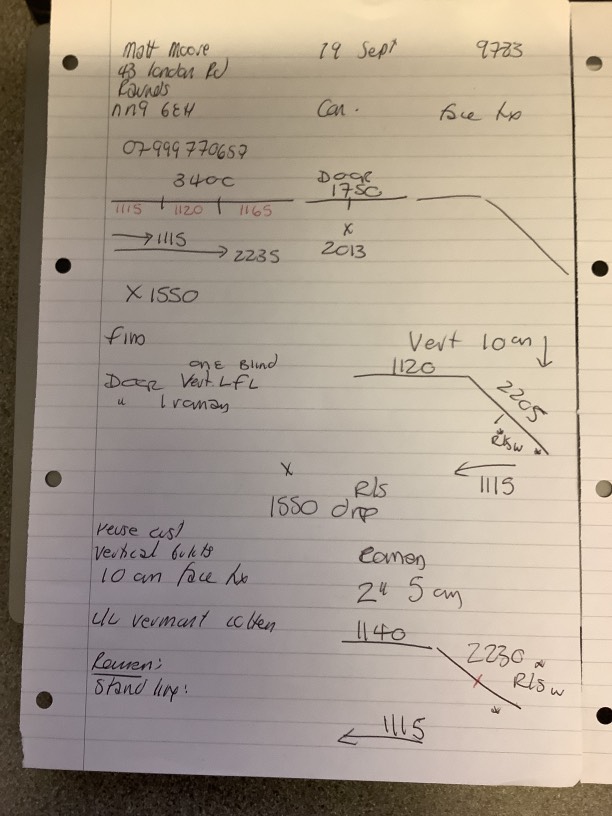 Matt Moore 19 Sept 9783
43 London Rd
Raunds
NN9 6EH Con. face fix
07999770657
3400 Door
1750
1115 1120 1165
1115 x
2235 2013
X 1550
Vert 10cm
one Blind 1120
Door Vert. LFL 2205
" 1 roman
* Rlsw *
x 1115
1550 drop Rls
reuse
vertical
10 cm face fix 2" 5cm
vermont 1140
2230
Roman: Rlsw
Stand
1115